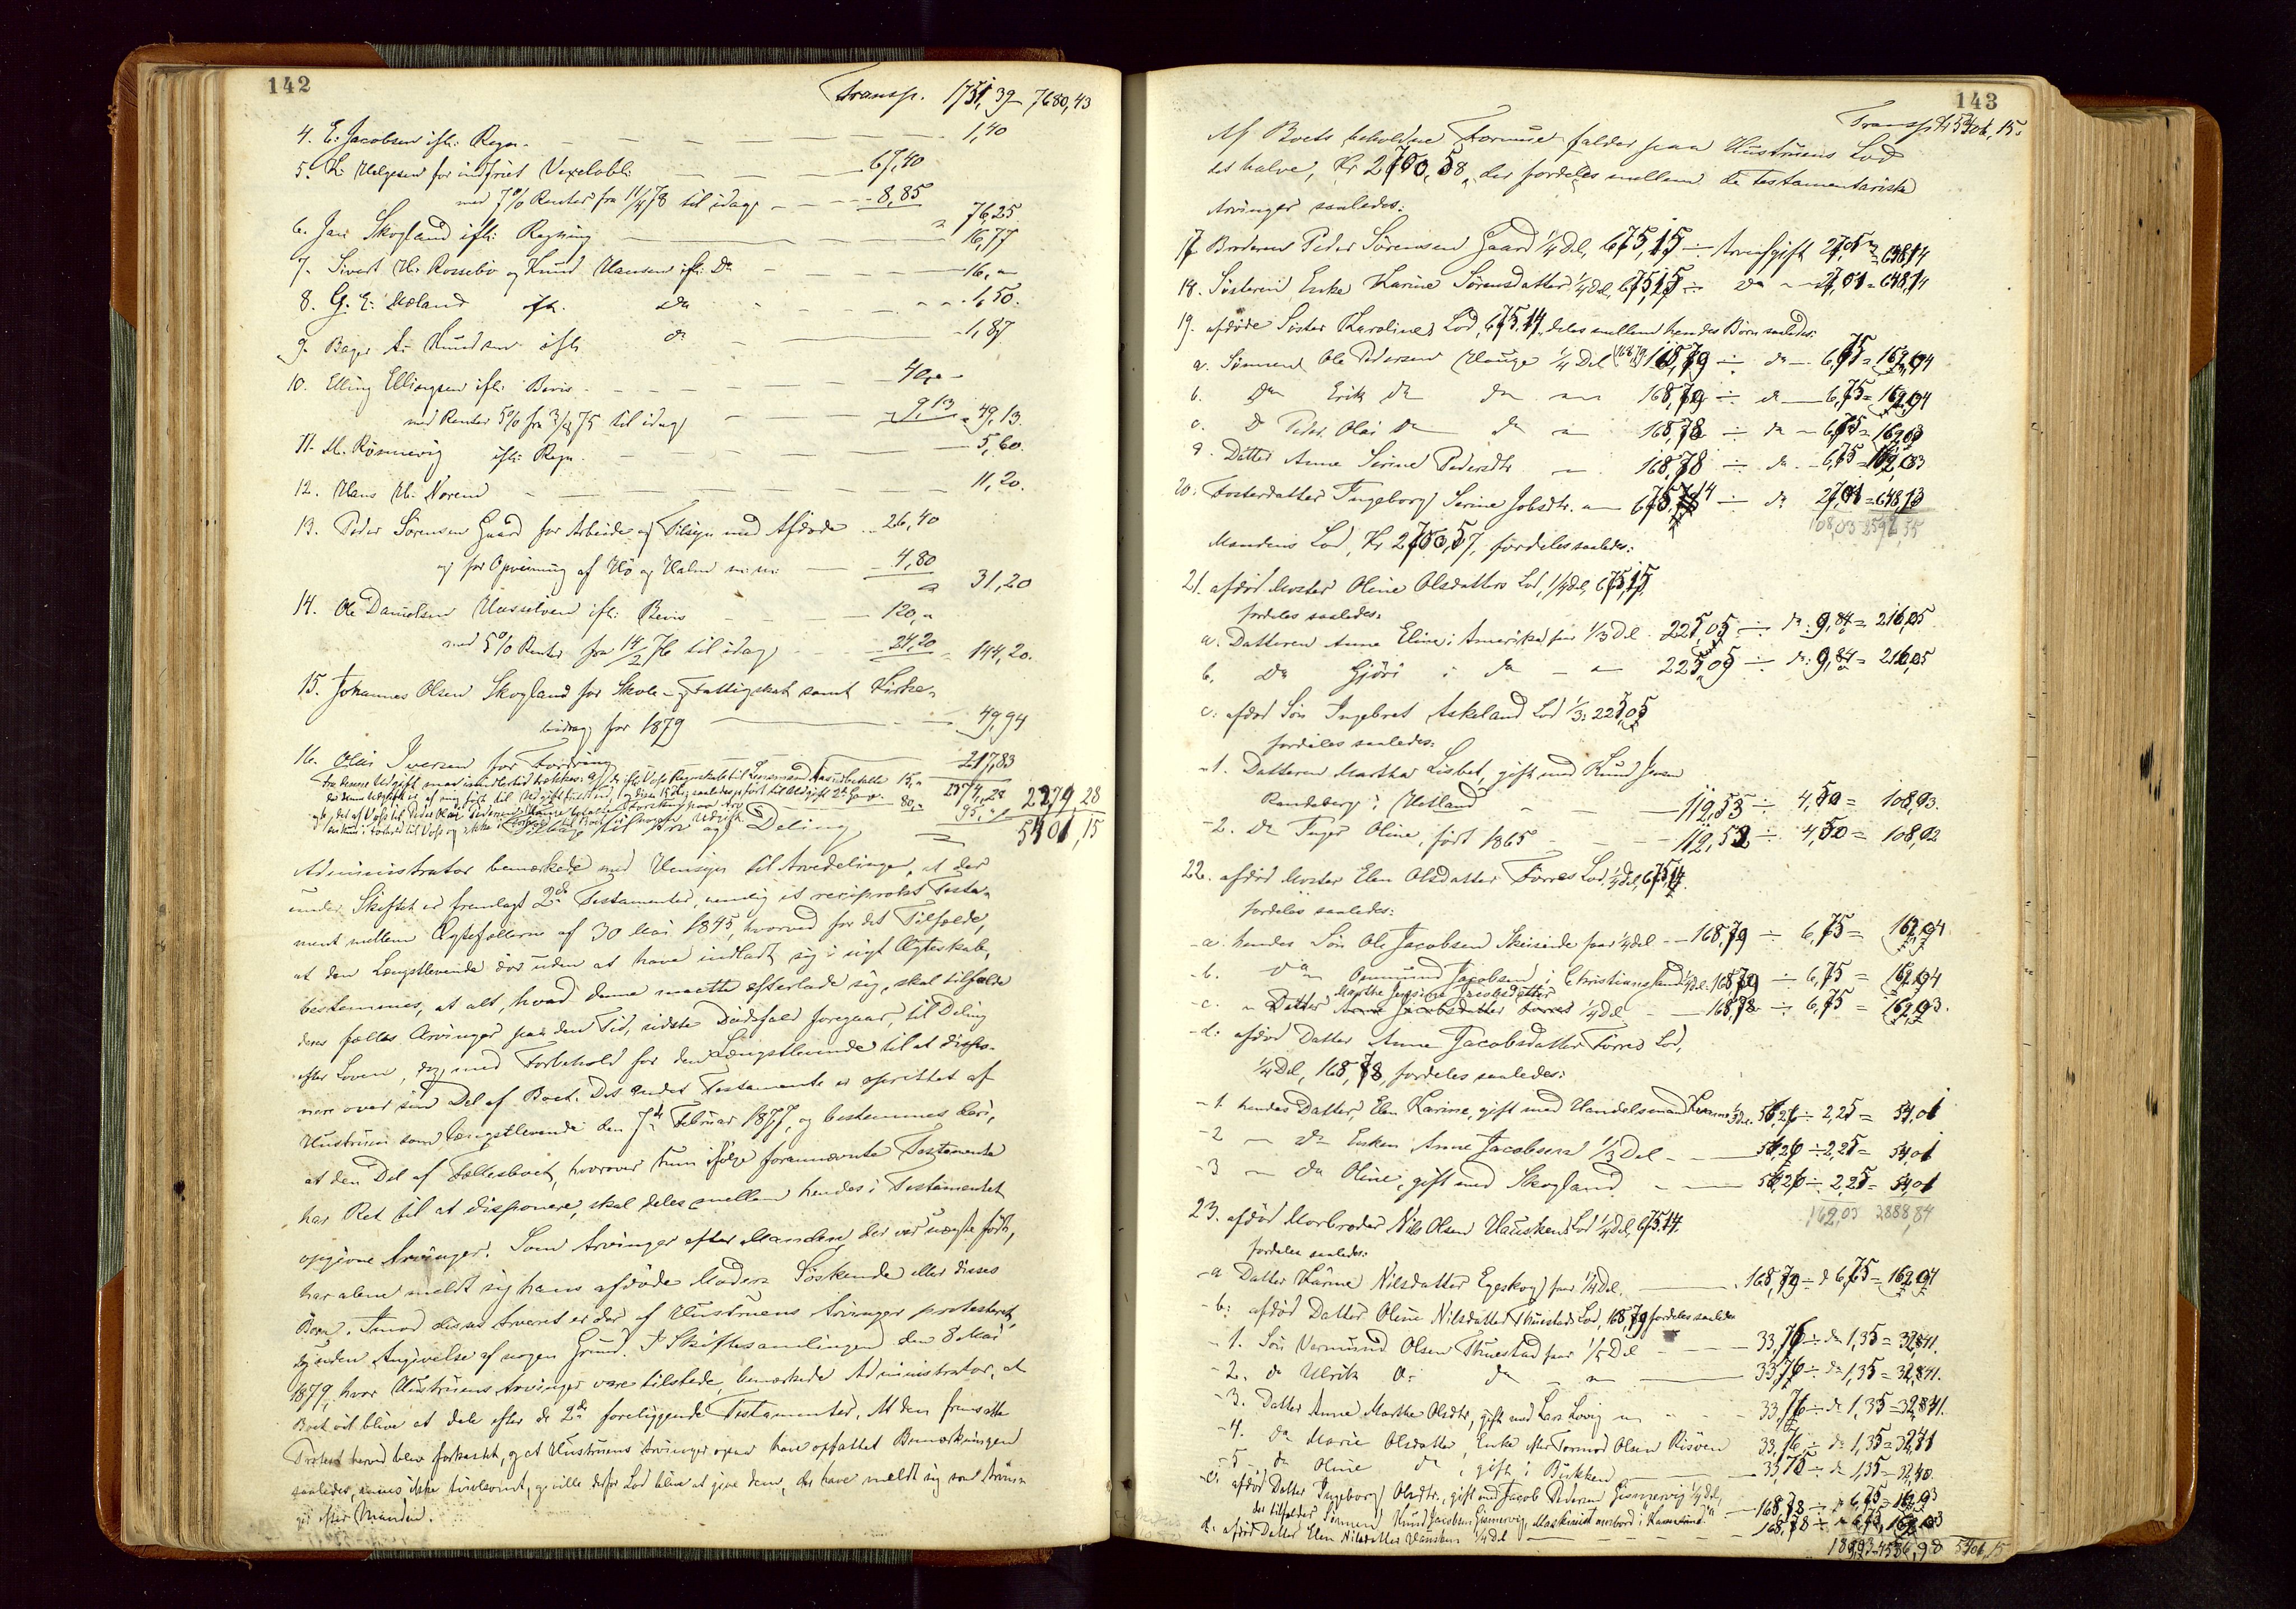 142
Transp. 1751,39 7680,43
4. E. Jacobsen ifl: Regn. 1,40
5. H. Helgesen for indfriet Vexelobl: 67,40
med 7% Renter fra 11/4 78 til idag 8,85
" 76,25
6. Jan Skogland ifl: Regning 16,77
7. Sivert H. Rossebö og Knud Hansen ifl: Do 16,"
8. G. E. Mæland ifl. Do 1,50.
9. Bager A. Knudsen ifl. do 1,87
10. Elling Ellingsen ifl: Bevis 40,"
med Renter 5% fra 3/8 75 til idag 9,13 " 49,13.
11. M. Rönnevig ifl: Regn. 5,60.
12. Hans H. Norem 11,20.
13. Peder Sörensen Gaard for Arbeide og Tilsyn med Afdøde 26,40
og for Opveining af Hö og Halm m.m. 4,80
" 31,20
14. Ole Danielsen Hasselven ifl: Bevis 120,"
med 5% Renter fra 14/2 76 til idag 24,20 " 144,20.
15. Johannes Olsen Skogland for Skole- og Fattigskat samt Kirke-
bidrag for 1879 49,94
16. Olai Iversen for Fordring 217,83
15,"
80,"
95,"
2374,28 2279,28
Tilbage til Arv og Deling 5401,15
Administrator bemærkede med Hensyn til Arvedelingen, at der
under Skiftet er fremlagt 2de Testamenter, nemlig et reciprokt Testa-
ment mellem Ægtefællerne af 30 Mai 1845, hvorved for det Tilfælde,
at den Længstlevende dør uden at have indladt sig i nyt Ægteskab,
bestemmes, at alt, hvad denne maatte efterlade sig, skal tilfalde
deres fælles Arvinger paa den Tid, sidste Dødsfald foregaar, til Deling
efter Loven, dog med Forbehold for den Længstlevende til at dispo-
nere over sin Del af Boet. Det andet Testamente er oprettet af
Hustruen som længstlevende den 7de Februar 1877, og bestemmes heri,
at den Del af Fællesboet, hvorover hun ifølge forannævnte Testamente
har Ret til at disponere, skal deles mellem hendes i Testamentet
opgivne Arvinger. Som Arvinger efter Manden, der var uægte født,
har alene meldt sig hans afdøde Moders Söskende eller disses
Børn. Imod disses Arveret er der af Hustruens Arvinger protesteret,
dog uden Angivelse af nogen Grund. I Skiftesamlingen den 8 Mai
1879, hvor Hustruens Arvinger vare tilstede, bemærkede Administrator, at
Boet vil blive at dele efter de 2de foreliggende Testamenter. At den fremsatte
Protest herved blev forkastet, og at Hustruens Arvinger ogsaa have opfattet Bemærkningen
saaledes, synes ikke tvivlsomt, og ville derfor Lod blive at give dem, der have meldt sig som Arvin-
ger efter Manden.
143
Transp. Kr 5401,15.
Af Boets beholdne Formue falder paa Hustruens Lod
det halve, Kr 2700,58, der fordeles mellem de testamentariske
Arvinger saaledes:
17. Broderen Peder Sörensen Gaard 1/4 Del, 675,15 ÷ Arveafgift 27,01 = 648,14
18. Søsteren Enke Karine Sørensdatter 1/4 Del, 675,15 ÷ Do 27,01 = 648,14
19. afdøde Søster Karolines Lod, 675,14, deles mellem hendes Børn saaledes:
a. Sønnen Ole Pedersen Hauge 1/4 Del 168,79 ÷ do 6,75 = 162,04
b. Do Erik do do " 168,79 ÷ do 6,75 = 162,04
c. Do Peder Olai do do " 168,78 ÷ do 6,75 = 162,03
d. Datter Anne Serine Pedersdtr. " 168,78 ÷ do 6,75 = 162,03
20. Fosterdatter Ingeborg Serine Jobsdtr. " 675,14 ÷ do 27,01 = 648,13
108,03 2592,55
Mandens Lod, Kr 2700,57, fordeles saaledes:
21. afdød Moster Oline Olsdatters Lod, 1/4 Del, 675,15,
fordeles saaledes:
a. Datteren Anne Eline i Amerika faar 1/3 Del 225,05 ÷ do: 9,84 = 216,05
b. Do Gjøri i do " 225,05 ÷ do: 9,84 = 216,05
c. afdød Søn Ingebret Askeland Lod 1/3: 225,05
fordeles saaledes:
1. Datteren Martha Lisbet, gift med Knud Jensen
Randeberg i Hetland 112,53 ÷ 4,50 = 108,03.
2. Do Inger Oline, født 1865 112,52 ÷ 4,50 = 108,02
22. afdød Moster Elen Olsdatter Førres Lod, 1/4 Del, 675,14.
fordeles saaledes:
a. hendes Søn Ole Jacobsen Skeiseide faar 1/4 Del 168,79 ÷ 6,75 = 162,04.
b. Do Omund Jacobsen i Christianssand 1/4 Del 168,79 ÷ 6,75 = 162,04
c. " Datter Marthe Jacobsdatter 1/4 Del 168,78 ÷ 6,75 = 162,03.
d. afdød Datter Anne Jacobsdatter Førres Lod,
1/4 Del, 168,78, fordeles saaledes:
1. hendes Datter, Elen Karine, gift med Handelsmand 1/3 Del. 56,26 ÷ 2,25 = 54,01
2. " Do Enken Anne Jacobsen 1/3 Del 56,26 ÷ 2,25 = 54,01
3. " Do Oline, gift med Skogland 56,26 ÷ 2,25 = 54,01
162,03 3888,84
23. afdød Morbroder Nils Olsen Hauskens Lod 1/4 Del, 675,14.
fordeles saaledes:
a. Datter Karine Nilsdatter Egeskog faar 1/4 Del. 168,79 ÷ do 6,75 = 162,04
b. afdød Datter Oline Nilsdatter Thuestads Lod, 168,79 fordeles saaledes
1. Søn Vermund Olsen Thuestad faar 1/5 Del 33,76 ÷ do 1,35 = 32,41.
2. do Ulrik O. do " 33,76 ÷ do 1,35 = 32,41.
3. Datter Anne Marthe Olsdtr, gift med Lars Lovig " 33,76 ÷ do 1,35 = 32,41.
4. Do Marie Olsdatter, Enke efter Tormod Olsen Risøen 33,76 ÷ do 1,35 = 32,41
5. Do Oline do, gift i Bukken 33,75 ÷ do 1,35 = 32,40.
c. afdød Datter Ingeborg Olsdtr., gift med Jacob Pedersen Gismervig 1/4 Del,
der tilfalder Sønnen Knud Jacobsen Gismervig, Maskinist ombord i "Karmsund" 168,78 ÷ 6,75 = 162,03
d. afdød Datter Elen Nilsdatter Hausken 1/4 Del 168,78 ÷ 6,75, 162,03
189,03 4536,98 5401,15